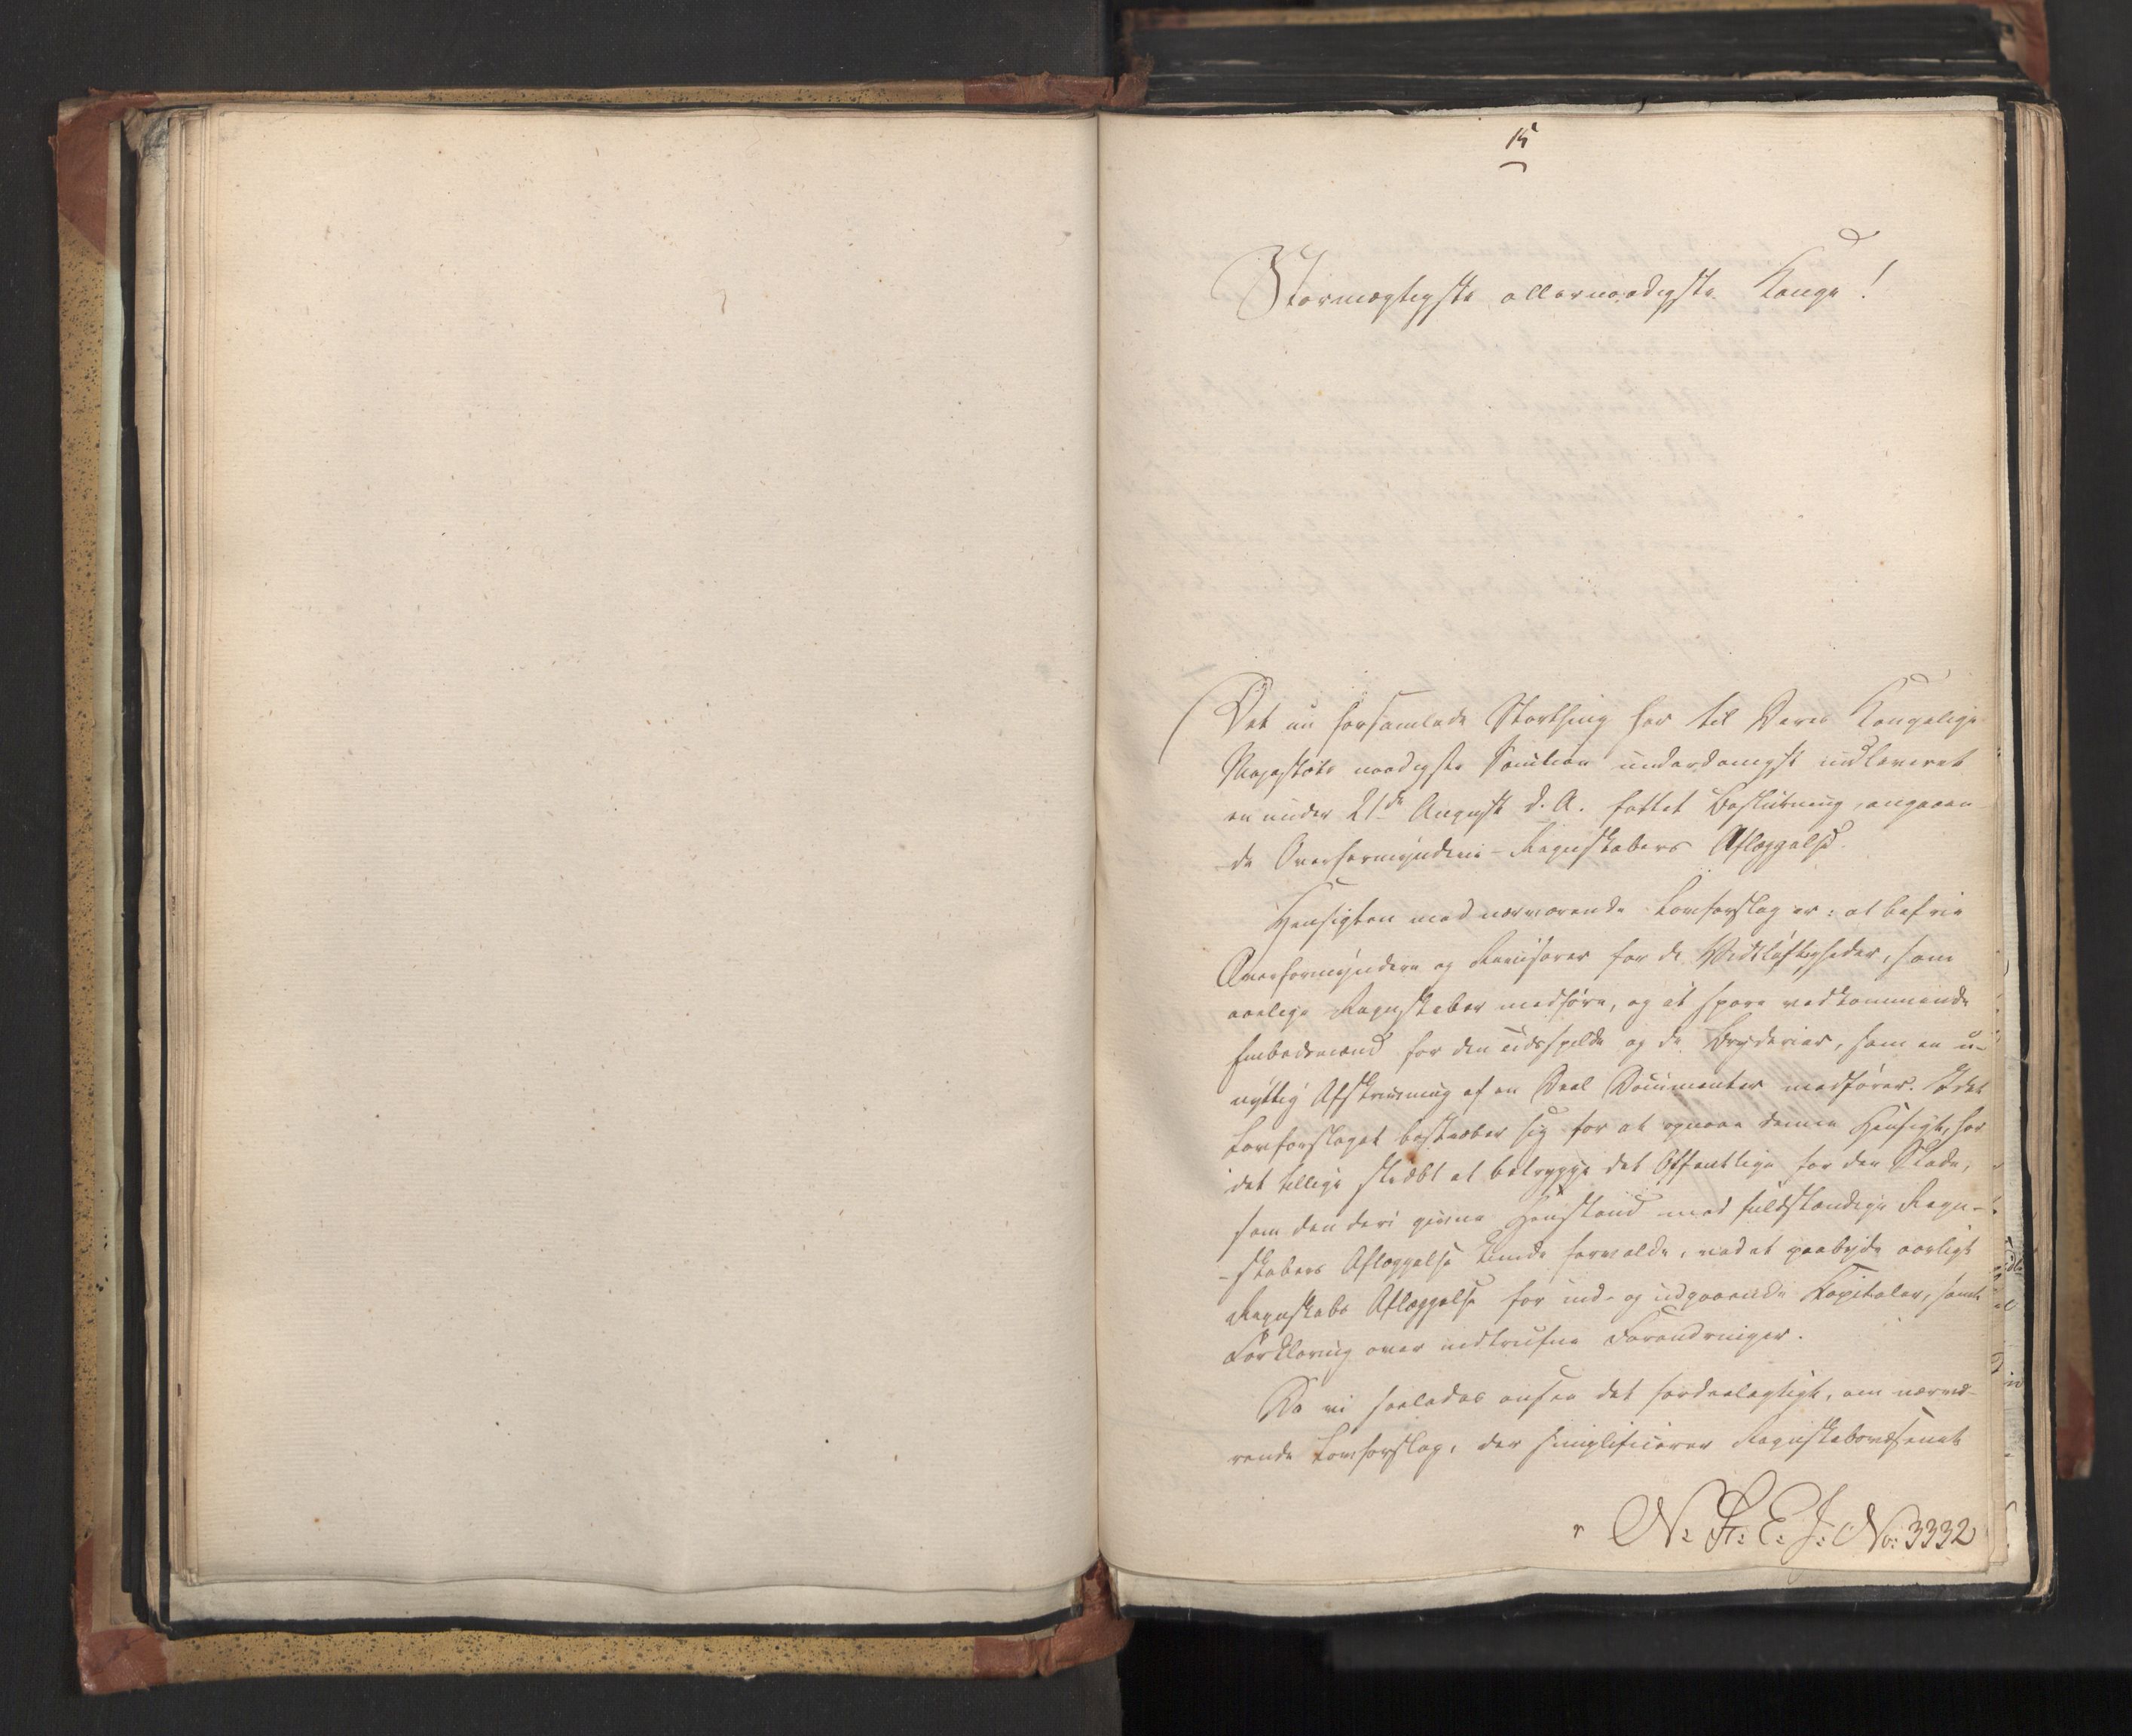 15
Stormægtigste allernaadigste Konge!
Det nu forsamlede Storthing har til Deres Kongelige
Majestæts naadigste Sanction underdanigst indleveret
en under 21de August d. A. fattet Beslutning, angaaen-
de Overformynderi-Regnskabers Aflæggelse.
Hensigten med nærværende Lovforslag er: at befrie
Overformyndere og Revisorer for de Vidtløftigheder, som
aarlige Regnskaber medføre, og at spare vedkommende
Embedsmænd for den Tidsspilde og de Bryderier, som en u-
nyttig Afskrivning af en Deel Documenter medfører. Idet
Lovforslaget bestræber sig for at opnaae denne Hensigt, har
det tillige stræbt at betrygge det Offentlige for den Skade,
som den deri givne Henstand med fuldstændige Regn-
-skabers Aflæggelse kunde forvolde, ved at paabyde aarligt
Regnskabs Aflæggelse for ind- og udgaaende Kapitaler, samt
Forklaring over indtrufne Forandringer.
Da vi saaledes ansee det fordeelagtigt, om nærvæ-
rende Lovforslag, der simplificerer Regnskabsvæsenet
N: St: E: J: No: 3332